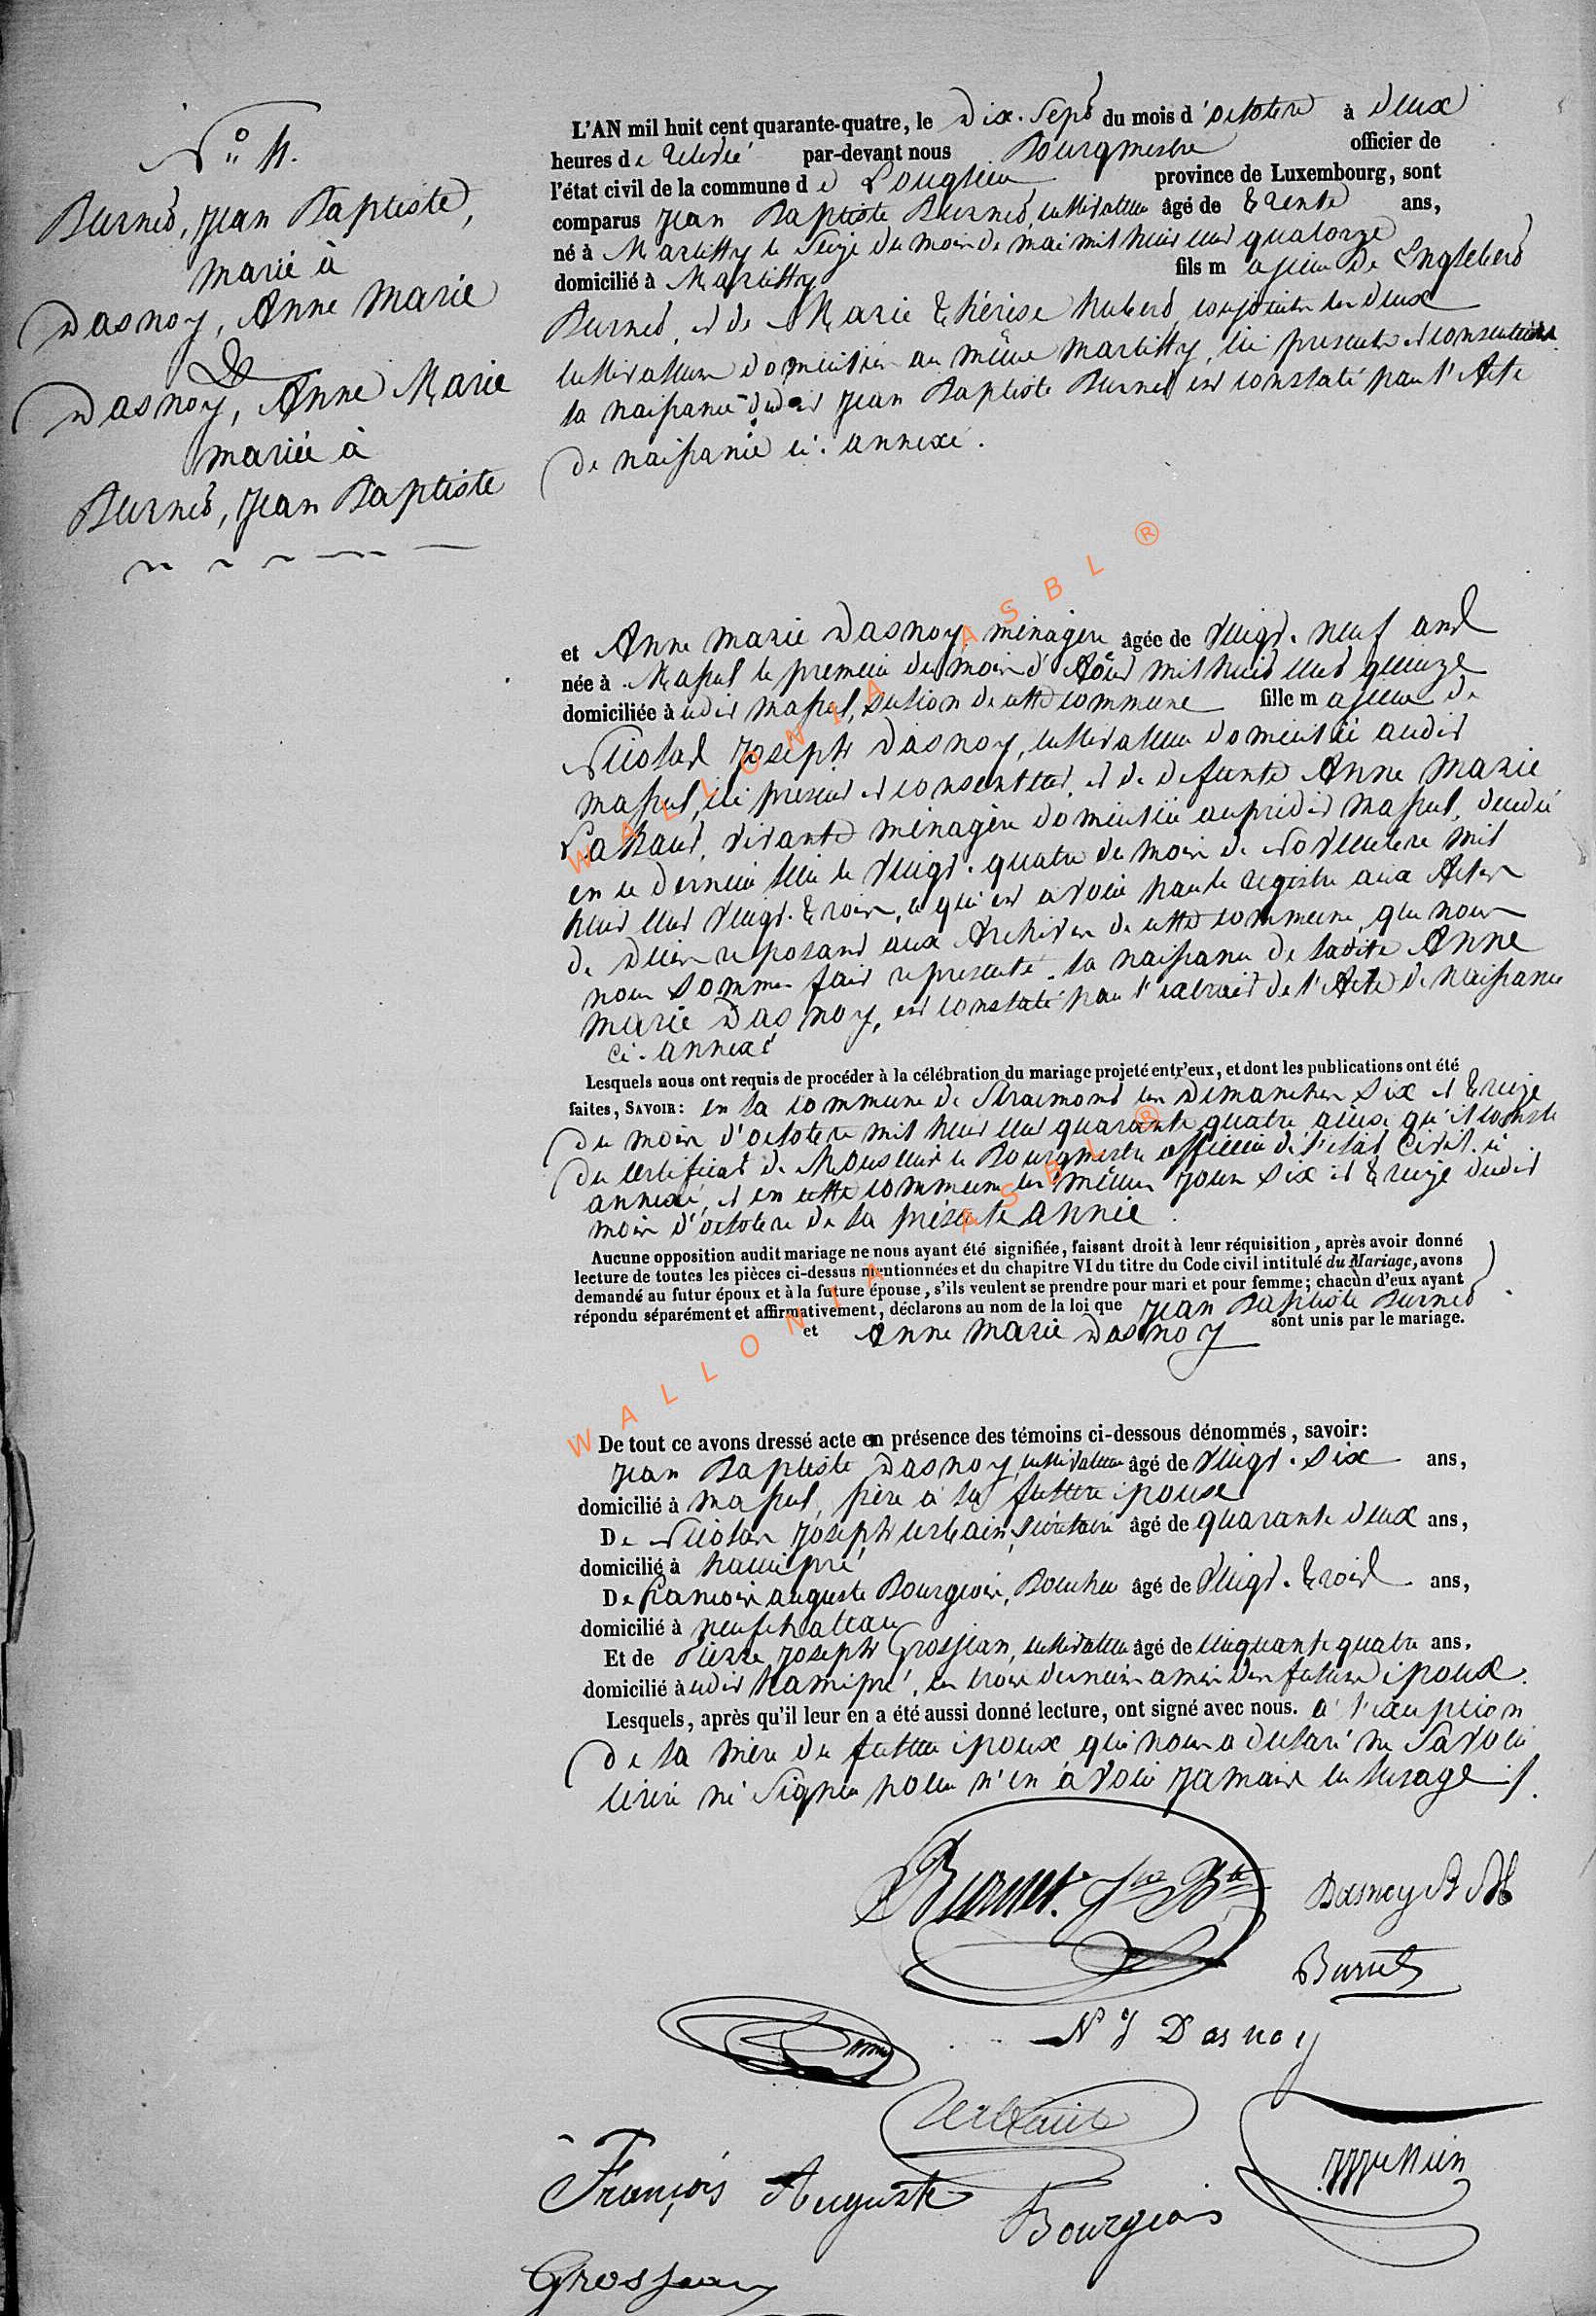 N° 11.
Burnet, Jean Baptiste,
marié à
Dasnoy, Anne Marie
&
Dasnoy, Anne Marie
mariée à
Burnet, Jean Baptiste
L'AN mil huit cent quarante-quatre, le Dix-Sept du mois d'octobre à deux
heures de relevée par-devant nous Bourgmestre officier de
l'état civil de la commune de Longlier province de Luxembourg, sont
comparus Jean Baptiste Burnet, cultivateur âgé de Trente ans,
né à Martilly le Seize du mois de mai mil huit cent quatorze
domicilié à Martilly fils majeur De Englebert
Burnet, et de Marie Thérèse hubert, conjoints les deux
cultivateurs domiciliés au même martilly, ici présents et consentants
la naissance dudit Jean Baptiste Burnet est constaté par l'Acte
de naissance ci-annexé.
et Anne marie Dasnoy, ménagère âgée de vingt-neuf ans
née à Massul le premier du mois d'Août mil huit cent quinze
domiciliée à udit massul, section de cette commune fille majeure de
Nicolas Joseph Dasnoy, cultivateur domicilié audit
massul, ici présent et consentant, et de défunte Anne Marie
Lahaut, vivante ménagère domiciliée au prédit massul, décédée
en ce dernier lieu le vingt-quatre du mois de Novembre mil
huit cent vingt-trois, ce qui est à voir par le registre aux Actes
de Décès reposant aux Archives de cette commune, que nous
nous sommes fait représenté. la naissance de ladite Anne
Marie Dasnoy, est constaté par l'extrait de l'Acte de Naissance
ci-annexé
Lesquels nous ont requis de procéder à la célébration du mariage projeté entr'eux, et dont les publications ont été
faites, SAVOIR: en la commune de Straimont les Dimanches six et treize
du mois d'octobre mil huit cent quarante quatre ainsi qu'il conste
du certificat de Monsieur le Bourgmestre officier de l'état Civil ci
annexé, et en cette commune les mêmes jours six et treize dudit
mois d'octobre de la présente année.
Aucune opposition audit mariage ne nous ayant été signifiée, faisant droit à leur réquisition, après avoir donné
lecture de toutes les pièces ci-dessus mentionnées et du chapitre VI du titre du Code civil intitulé du Mariage, avons
demandé au futur époux et à la future épouse, s'ils veulent se prendre pour mari et pour femme; chacun d'eux ayant
répondu séparément et affirmativement, déclarons au nom de la loi que Jean Baptiste Burnet
et Anne Marie Dasnoy sont unis par le mariage.
De tout ce avons dressé acte en présence des témoins ci-dessous dénommés, savoir:
Jean Baptiste Dasnoy, cultivateur âgé de vingt-six ans,
domicilié à massul, frère à la future épouse
De Nicolas Joseph Urbain, Secrétaire âgé de quarante deux ans,
domicilié à hamipré
De francois auguste Bourgeois, Boucher âgé de vingt-trois ans,
domicilié à neufchateau
Et de Pierre Joseph Grosjean, cultivateur âgé de cinquante quatre ans,
domicilié à udit hamipré, les trois derniers amis des futurs époux.
Lesquels, après qu'il leur en a été aussi donné lecture, ont signé avec nous. à l'exception
de la mère du futur époux, qui nous a déclaré ne savoir
écrire ni signer pour n'en avoir jamais eu l'usage ./.
Burnet. Jn Bte
Dasnoy A M
Burnet
N J Dasnoy
Urbain
François Auguste Bourgeois
Grosjean
WALLONIA ASBL ®
WALLONIA ASBL ®